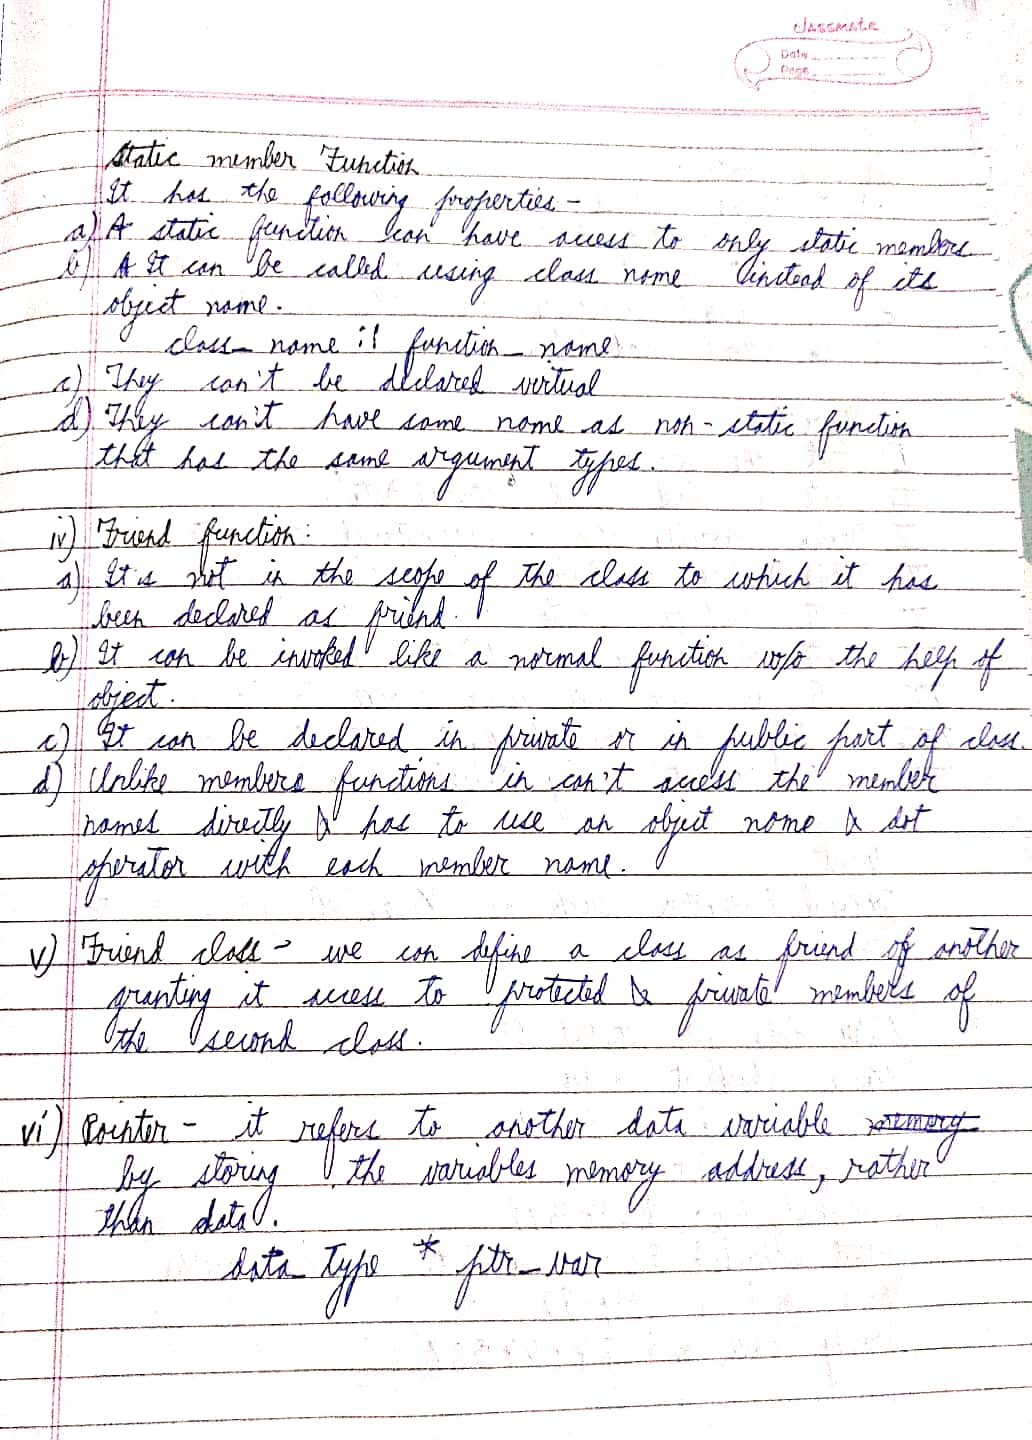 classmate
Date
Page
Static member Function
It has the following properties -
a) A static function can have access to only static members
b) A It can be called using class name instead of its
object name.
class_name :: function_name
c) They can't be declared virtual
d) They can't have same name as non-static function
that has the same argument types.
iv) Friend function:
a) It is not in the scope of the class to which it has
been declared as friend.
b) It can be invoked like a normal function w/o the help of
object.
c) It can be declared in private or in public part of class
d) Unlike members functions in can't access the member
names directly & has to use an object name & dot
operator with each member name.
v) Friend class - we can define a class as friend of another
granting it access to protected & private members of
the second class.
vi) Pointer - it refers to another data variable memory
by storing the variables memory address, rather
than data.
data_Type * ptr_var